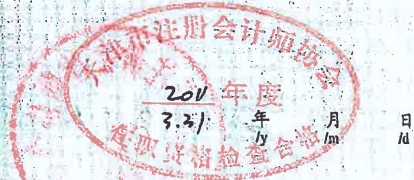 天津市注册会计师协会
2011 年度
3.31 年 月 日
/y /m /d
任职资格检查合格